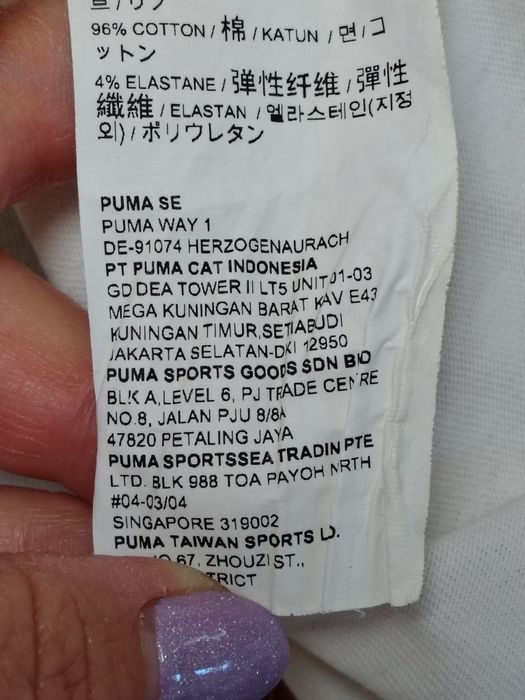 96% COTTON / 棉 / KATUN / 면 / コ
ットン
4% ELASTANE / 弹性纤维 / 彈性
纖維 / ELASTAN / 엘라스테인(지정
외) / ポリウレタン
PUMA SE
PUMA WAY 1
DE-91074 HERZOGENAURACH
PT PUMA CAT INDONESIA
GD DEA TOWER II LT5 UNIT 01-03
MEGA KUNINGAN BARAT KAV E43
KUNINGAN TIMUR,SETIABUDI
JAKARTA SELATAN-DKI 12950
PUMA SPORTS GOODS SDN BHD
BLK A,LEVEL 6, PJ TRADE CENTRE
NO.8, JALAN PJU 8/8A
47820 PETALING JAYA
PUMA SPORTSSEA TRADIN PTE
LTD. BLK 988 TOA PAYOH NRTH
#04-03/04
SINGAPORE 319002
PUMA TAIWAN SPORTS
67, ZHOUZI ST.,